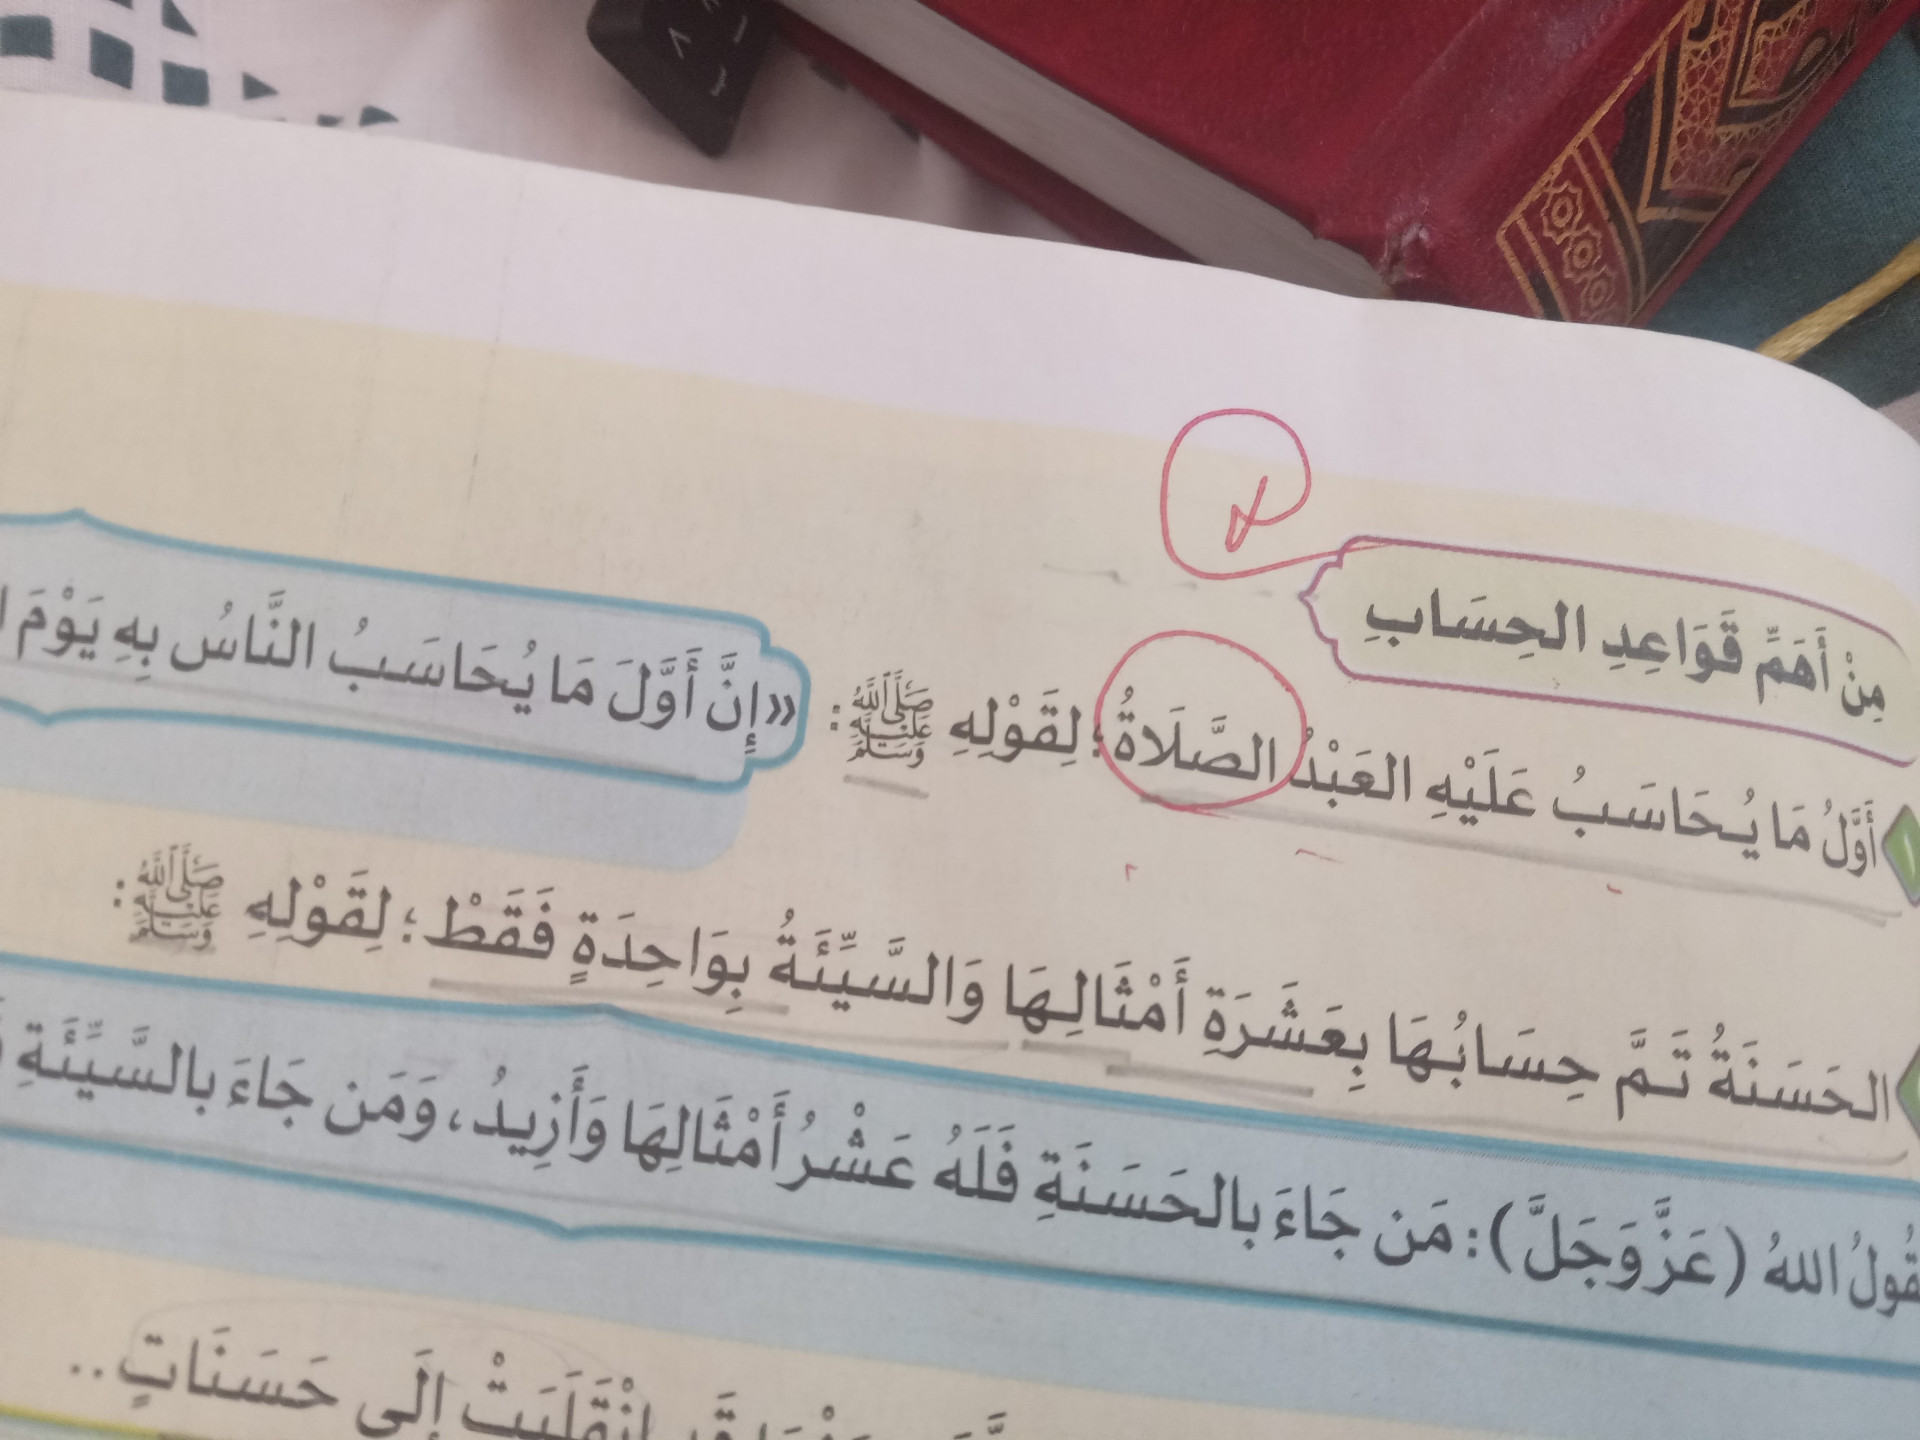 مِنْ أَهَمِّ قَوَاعِدِ الحِسَابِ
أَوَّلُ مَا يُحَاسَبُ عَلَيْهِ العَبْدُ الصَّلَاةُ؛ لِقَوْلِهِ ﷺ: «إِنَّ أَوَّلَ مَا يُحَاسَبُ النَّاسُ بِهِ يَوْمَ
الحَسَنَةُ تَمَّ حِسَابُهَا بِعَشَرَةِ أَمْثَالِهَا وَالسَّيِّئَةُ بِوَاحِدَةٍ فَقَطْ؛ لِقَوْلِهِ ﷺ:
اللهُ (عَزَّ وَجَلَّ): مَن جَاءَ بِالحَسَنَةِ فَلَهُ عَشْرُ أَمْثَالِهَا وَأَزِيدُ، وَمَن جَاءَ بِالسَّيِّئَةِ
انْقَلَبَتْ إِلَى حَسَنَاتٍ..